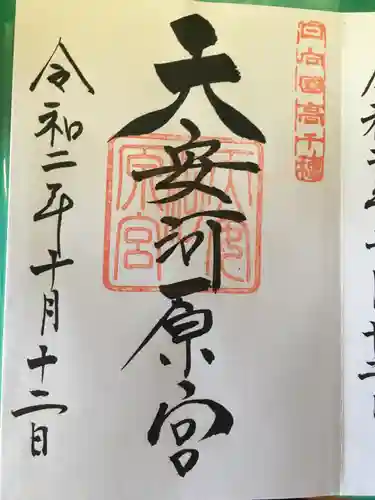 日向国高千穂
天安河原宮
令和二年十月十二日